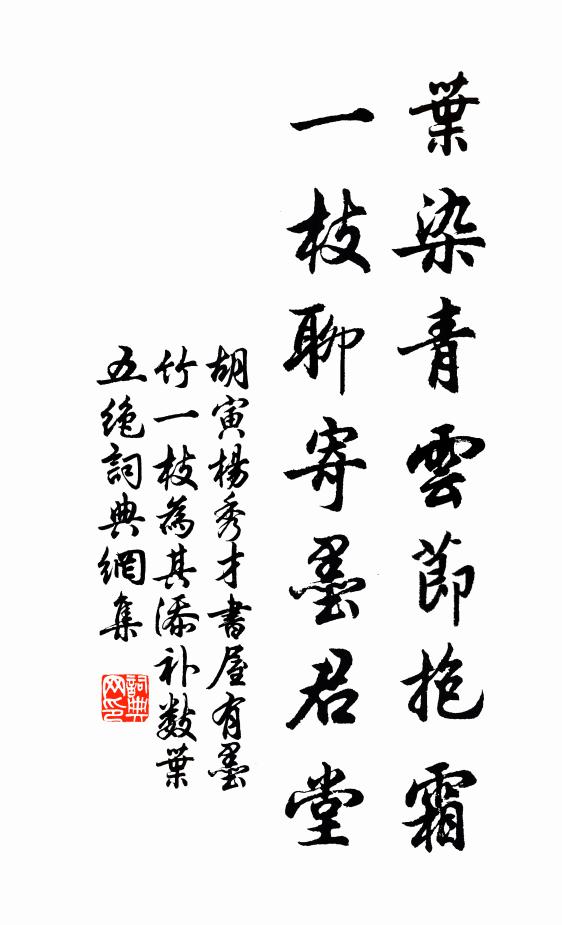 葉染青雲節抱霜
一枝聊寄墨君堂
胡寅楊秀才書屋有墨
竹一枝為其添补數葉
五绝詞典網集
詞典网印